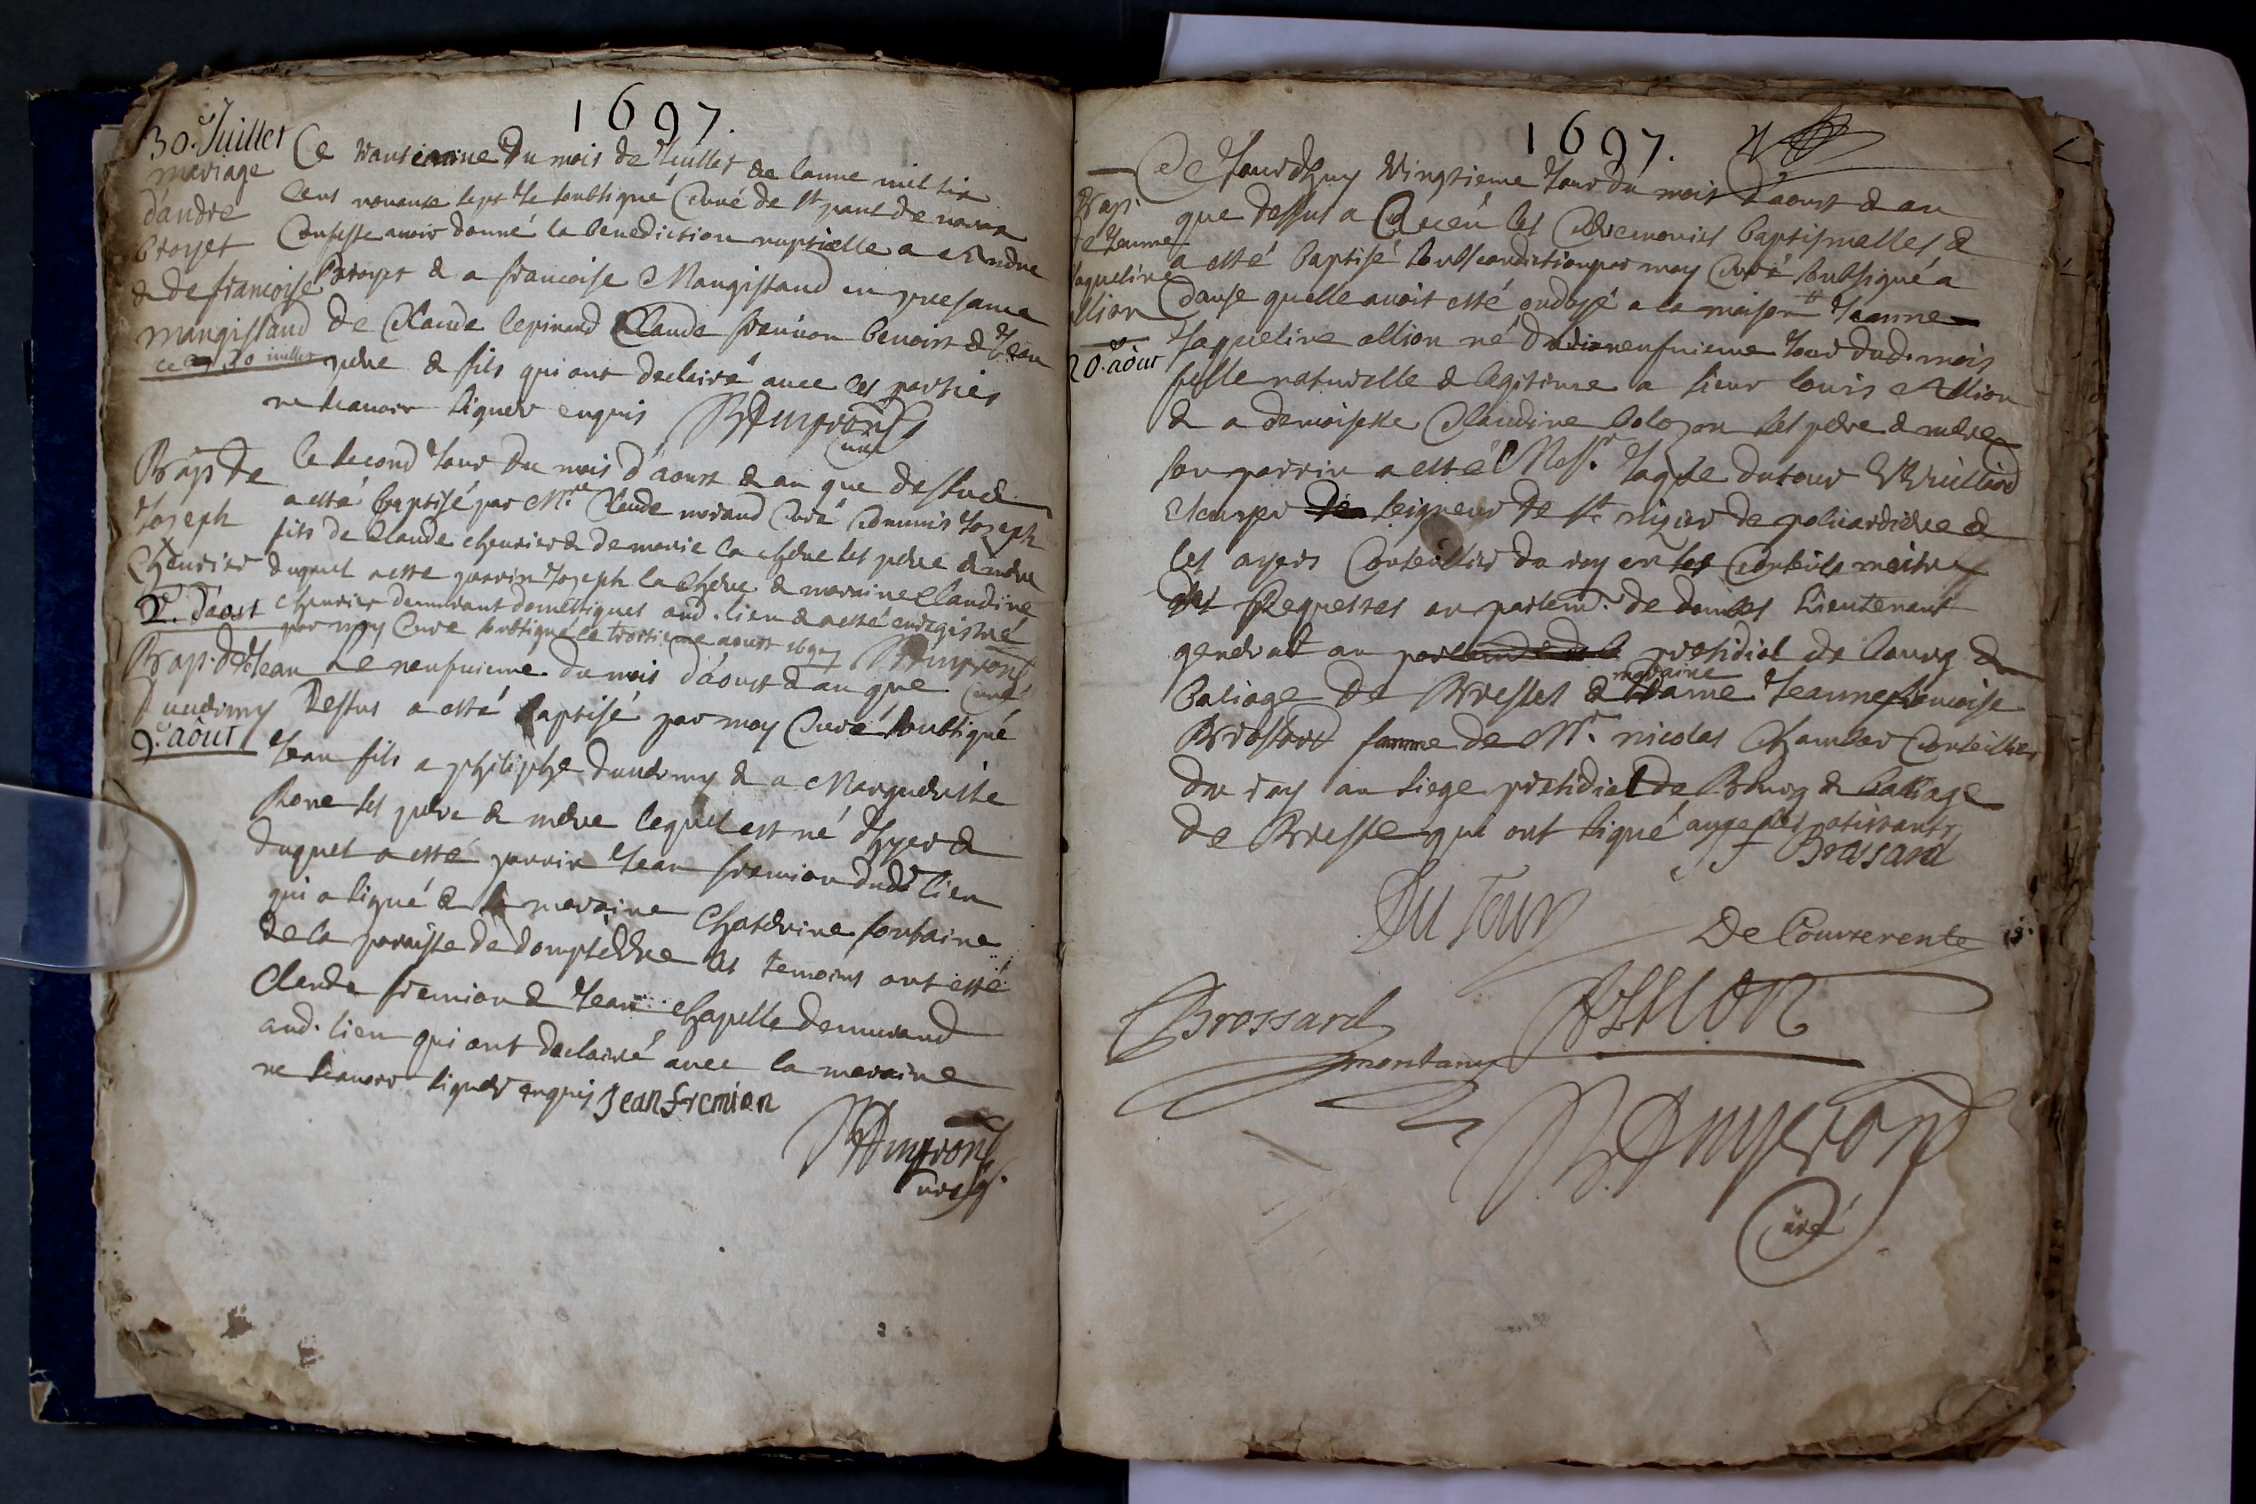 1697.
30.e Juillet
mariage
d'andre
broyet
& de francoise
mangistaud
ce 30 juillet
Ce trantieme du mois de Juillet de lanne mil six
cens nonante sept Je soubsigné Curé de st paul de varax
Confesse avoir donné la benediction nuptialle a Andre
Broyet & a francoise Mangistaud en presance
de Claude lepinard Claude fremion benoist & Jean
pere & fils qui ont declairé avec les parties
ne scavoir signer enquis
curé
Bap. de
Joseph
Chevrier
2.e d'aost
Le second Jour du mois d'aoust & an que dessus
a esté baptisé par Mre Claude morand Curé Commis Joseph
fils de Claude chevrier & de marie la chere ses pere & mere
duquel a esté parrin Joseph la Chere & maraine Claudine
chevrier demurant domestiques aud. lieu & a esté enregistré
par moy Curé soubsigné le troisieme aoust 1697
curé
Bap. de Jean
9.e aôut
Le neufvieme du mois d'aoust & an que
dessus a esté baptisé par moy Curé soubsigné
Jean fils a philiphe & a Marguerite
Rone ses pere & mere lequel est né d'hyer &
duquel a esté parrin Jean fremion dud. lieu
qui a signé & la maraine Chaterine fontaine
de la paroisse de dompierre les temoins ont esté
Claude fremion & Jean Chapelle demurand
aud. lieu qui ont declairé avec la maraine
ne scavoir signer enquis Jean fremion
curé
1697.
Bap.
de Jeanne
Jaqueline
allion
20.e aôut
Ce Jourd'huy Vingtieme Jour du mois d'aoust & an
que dessus a Receu les Ceremonies baptismalles &
a esté baptisé soubs condiction par moy Curé soubsigné a
Cause quelle avoit esté ondoyé a la maison Jeanne
Jaqueline allion né du dixneufvieme Jour dud. mois
fille naturelle & legitime a sieur louis Allion
& a demoiselle Claudine bolozon ses pere & mere
son parrin a esté Messr. Jaque dutour Vuilliard
seigneur de st nizier de
les ayers Conseillier du roy en ses Conseils maitre
des Requestes au parlem.t de dombes Lieutenant
general au presidial de bourg &
baliage de Bresse & maraine dame Jeanne francoise
Brossard famme de Mr. nicolas Chambar Conseiller
du roy au siege presidial de Bourg & balliage
de Bresse qui ont signé avec les assistants
J F Brossard
Du Tour
De Courterente
C Brossard
montany
Allion
Curé